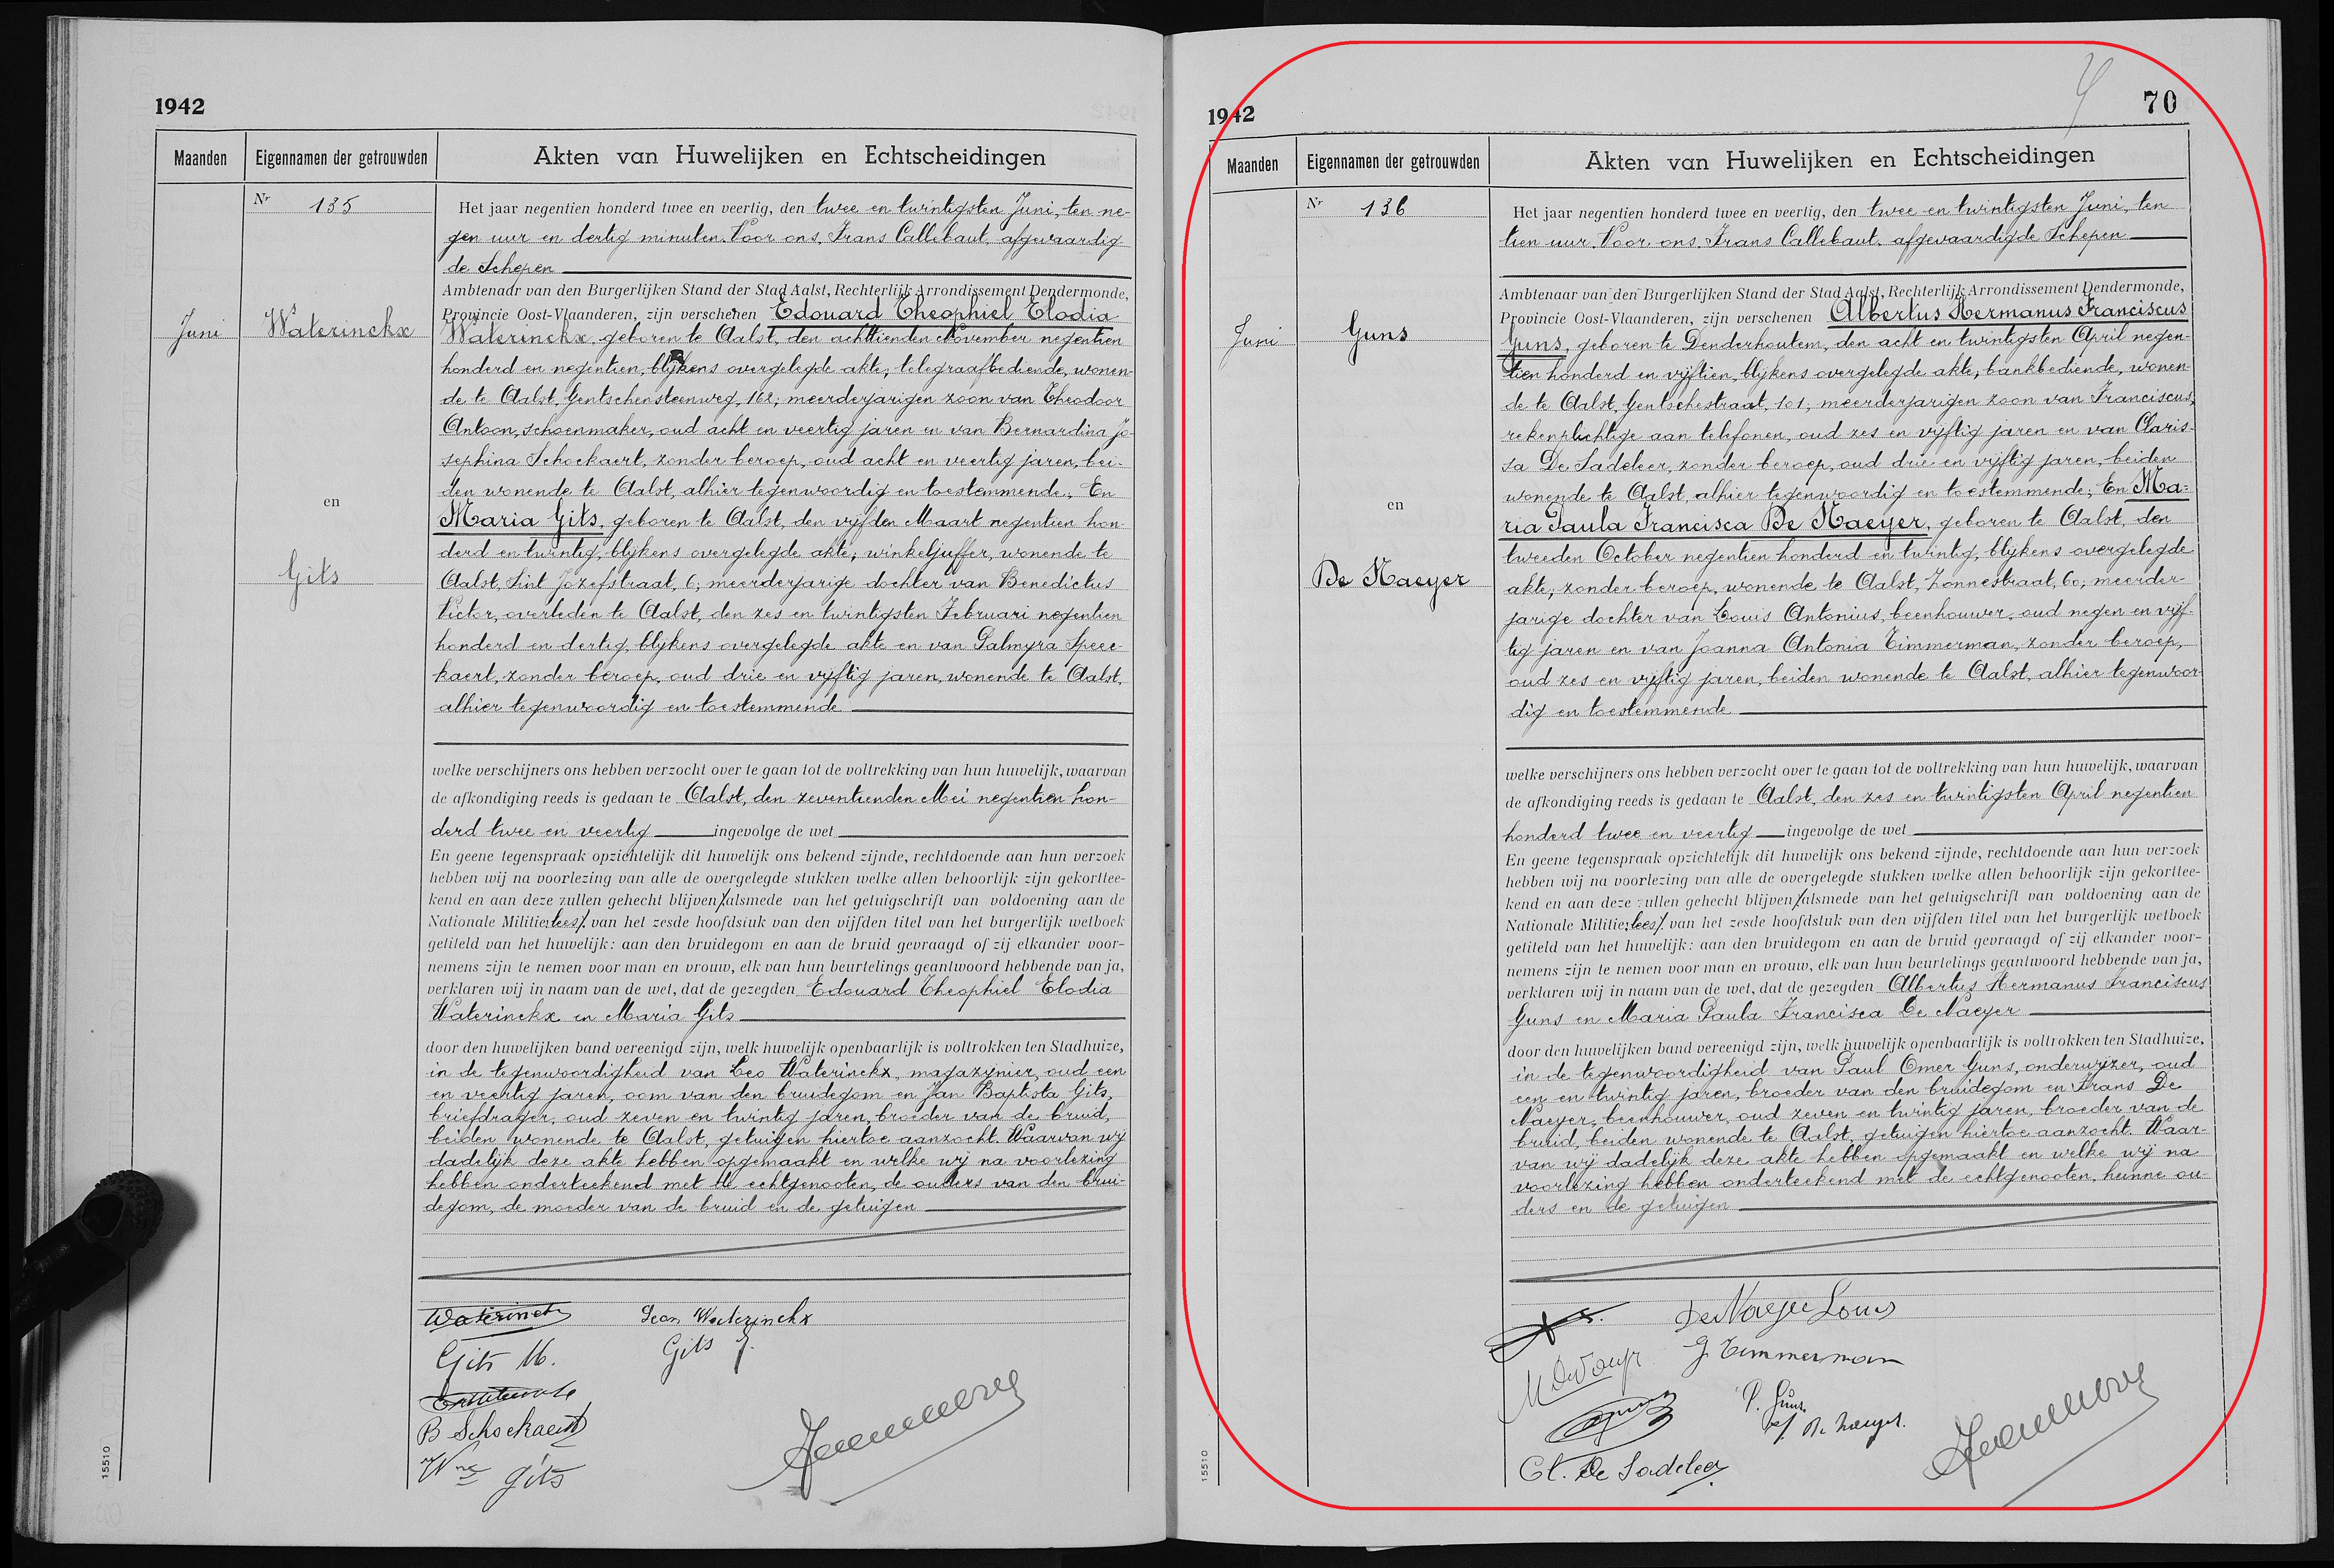 1942
Maanden
Eigennamen der getrouwden
Akten van Huwelijken en Echtscheidingen
Nr 135
Juni
Waterinckx
en
Gits
Het jaar negentien honderd twee en veertig, den twee en twintigsten Juni, ten ne-
gen uur en dertig minuten. Voor ons, Frans Callebaut, afgevaardig-
de Schepen
Ambtenaar van den Burgerlijken Stand der Stad Aalst, Rechterlijk Arrondissement Dendermonde,
Provincie Oost-Vlaanderen, zijn verschenen Edouard Theophiel Elodia
Waterinckx, geboren te Aalst, den achttienden November negentien
honderd en negentien, blijkens overgelegde akte, telegraafbediende, wonen-
de te Aalst, Gentschensteenweg, 162, meerderjarigen zoon van Theodoor
Antoon, schoenmaker, oud acht en veertig jaren en van Bernardina Jo-
sephina Schockaert, zonder beroep, oud acht en veertig jaren, bei-
den wonende te Aalst, alhier tegenwoordig en toestemmende; En
Maria Gits, geboren te Aalst, den vijfden Maart negentien hon-
derd en twintig, blijkens overgelegde akte, winkeljuffer, wonende te
Aalst, Sint Jozefstraat, 6; meerderjarige dochter van Benedictus
Victor, overleden te Aalst, den zes en twintigsten Februari negentien
honderd en dertig, blijkens overgelegde akte en van Palmyra Speec-
kaert, zonder beroep, oud drie en vijftig jaren, wonende te Aalst,
alhier tegenwoordig en toestemmende
welke verschijners ons hebben verzocht over te gaan tot de voltrekking van hun huwelijk, waarvan
de afkondiging reeds is gedaan te Aalst, den zeventienden Mei negentien hon-
derd twee en veertig ingevolge de wet
En geene tegenspraak opzichtelijk dit huwelijk ons bekend zijnde, rechtdoende aan hun verzoek
hebben wij na voorlezing van alle de overgelegde stukken welke allen behoorlijk zijn gekorttee-
kend en aan deze zullen gehecht blijven/alsmede van het getuigschrift van voldoening aan de
Nationale Militie;lees/. van het zesde hoofdstuk van den vijfden titel van het burgerlijk wetboek
getiteld van het huwelijk: aan den bruidegom en aan de bruid gevraagd of zij elkander voor-
nemens zijn te nemen voor man en vrouw, elk van hun beurtelings geantwoord hebbende van ja,
verklaren wij in naam van de wet, dat de gezegden Edouard Theophiel Elodia
Waterinckx en Maria Gits
door den huwelijken band vereenigd zijn, welk huwelijk openbaarlijk is voltrokken ten Stadhuize,
in de tegenwoordigheid van Leo Waterinckx, magazynier, oud een
en veertig jaren, oom van den bruidegom en Jan Baptista Gits,
briefdrager, oud zeven en twintig jaren, broeder van de bruid,
beiden wonende te Aalst, getuigen hiertoe aanzocht. Waarvan wij
dadelijk deze akte hebben opgemaakt en welke wij na voorlezing
hebben onderteekend met de echtgenooten, de ouders van den brui-
degom, de moeder van de bruid en de getuigen
Waterinckx
Leon Waterinckx
Gits M.
Gits J.
B Schockaert
Wwe Gits
15510
1942
70
Maanden
Eigennamen der getrouwden
Akten van Huwelijken en Echtscheidingen
Nr 136
Juni
Guns
en
De Naeyer
Het jaar negentien honderd twee en veertig, den twee en twintigsten Juni, ten
tien uur. Voor ons, Frans Callebaut, afgevaardigde Schepen
Ambtenaar van den Burgerlijken Stand der Stad Aalst, Rechterlijk Arrondissement Dendermonde,
Provincie Oost-Vlaanderen, zijn verschenen Albertus Hermanus Franciscus
Guns, geboren te Denderhoutem, den acht en twintigsten April negen-
tien honderd en vijftien, blijkens overgelegde akte, bankbediende, wonen-
de te Aalst, Gentschestraat, 101, meerderjarigen zoon van Franciscus,
rekenplichtige aan telefonen, oud zes en vijftig jaren en van Claris-
sa De Sadeleer, zonder beroep, oud drie en vijftig jaren, beiden
wonende te Aalst, alhier tegenwoordig en toestemmende; En Ma-
ria Paula Francisca De Naeyer, geboren te Aalst, den
tweeden October negentien honderd en twintig, blijkens overgelegde
akte; zonder beroep, wonende te Aalst, Zonnestraat, 60; meerder-
jarige dochter van Louis Antonius, beenhouwer, oud negen en vijf-
tig jaren en van Joanna Antonia Timmerman, zonder beroep,
oud zes en vijftig jaren, beiden wonende te Aalst, alhier tegenwoor-
dig en toestemmende
welke verschijners ons hebben verzocht over te gaan tot de voltrekking van hun huwelijk, waarvan
de afkondiging reeds is gedaan te Aalst, den zes en twintigsten April negentien
honderd twee en veertig ingevolge de wet
En geene tegenspraak opzichtelijk dit huwelijk ons bekend zijnde, rechtdoende aan hun verzoek
hebben wij na voorlezing van alle de overgelegde stukken welke allen behoorlijk zijn gekorttee-
kend en aan deze zullen gehecht blijven/alsmede van het getuigschrift van voldoening aan de
Nationale Militie;lees/. van het zesde hoofdstuk van den vijfden titel van het burgerlijk wetboek
getiteld van het huwelijk: aan den bruidegom en aan de bruid gevraagd of zij elkander voor-
nemens zijn te nemen voor man en vrouw, elk van hun beurtelings geantwoord hebbende van ja,
verklaren wij in naam van de wet, dat de gezegden Albertus Hermanus Franciscus
Guns en Maria Paula Francisca De Naeyer
door den huwelijken band vereenigd zijn, welk huwelijk openbaarlijk is voltrokken ten Stadhuize,
in de tegenwoordigheid van Paul Omer Guns, onderwijzer, oud
een en twintig jaren, broeder van den bruidegom en Frans De
Naeyer, beenhouwer, oud zeven en twintig jaren, broeder van de
bruid, beiden wonende te Aalst, getuigen hiertoe aanzocht. Waar-
van wij dadelijk deze akte hebben opgemaakt en welke wij na
voorlezing hebben onderteekend met de echtgenooten, hunne ou-
ders en de getuigen
De Naeyer Louis
M De Naeyer
J Timmerman
P. Guns
F. De Naeyer.
Cl. De Sadeleer
15510